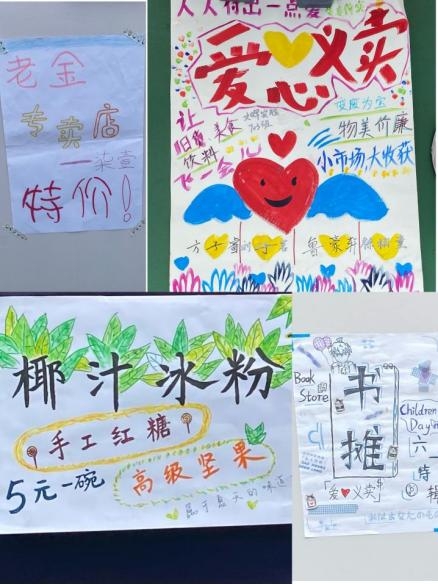 老金
专卖店
一柒壹
特价！
人人付出一点爱
爱心义卖
变废为宝
物美价廉
小市场大收获
让
旧货 美食
饮料
飞一会儿
椰汁冰粉
手工红糖
高级坚果
5元一碗
属于夏天的味道
Book
Store
书
摊
「爱♥义卖」
Children
Day
六一
特
辑